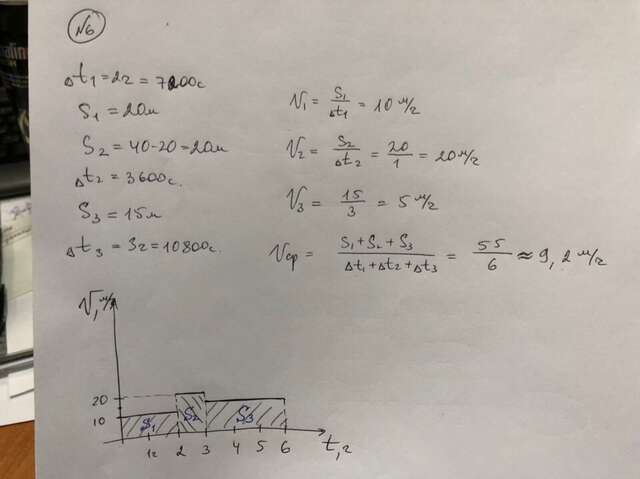 №6
Δt₁ = 2г = 7200с
S₁ = 20м
S₂ = 40-20 = 20м
Δt₂ = 3600с.
S₃ = 15м
Δt₃ = 3г = 10800с.
V₁ = S₁/Δt₁ = 10 м/г
V₂ = S₂/Δt₂ = 20/1 = 20 м/г
V₃ = 15/3 = 5 м/г
Vср = (S₁+S₂+S₃)/(Δt₁+Δt₂+Δt₃) = 55/6 ≈ 9,2 м/г
V, м/г
20
10
S₁ S₂ S₃
1г 2 3 4 5 6 t,г